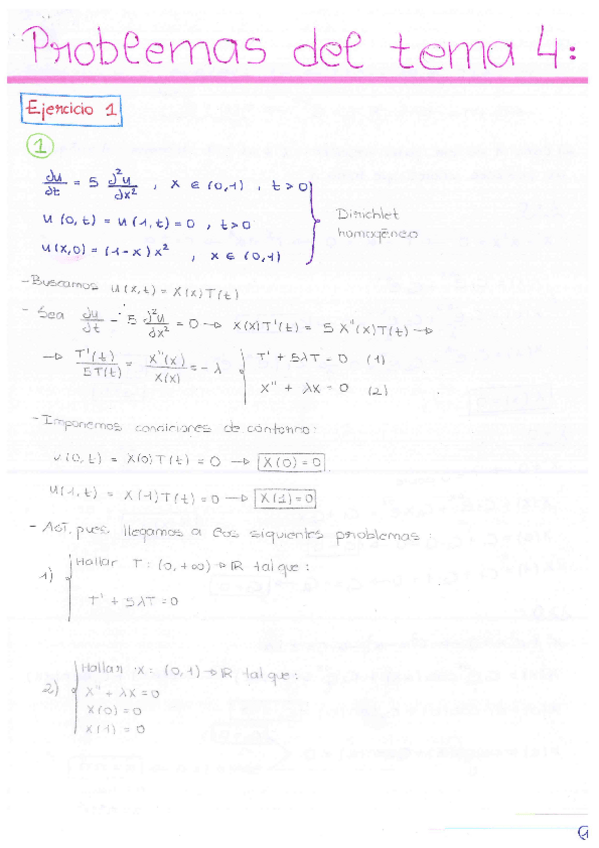 Problemas del tema 4:
Ejercicio 1
1
∂u/∂t = 5 ∂²u/∂x² , x ∈ (0,1) , t>0
u(0,t) = u(1,t) = 0 , t>0
Dirichlet
homogéneo
u(x,0) = (1-x)x² , x ∈ (0,1)
- Buscamos u(x,t) = X(x)T(t)
- Sea ∂u/∂t - 5 ∂²u/∂x² = 0 → X(x)T'(t) = 5 X''(x)T(t) →
→ T'(t)/5T(t) = X''(x)/X(x) = -λ { T' + 5λT = 0 (1)
X'' + λX = 0 (2)
- Imponemos condiciones de contorno:
u(0,t) = X(0)T(t) = 0 → X(0) = 0
u(1,t) = X(1)T(t) = 0 → X(1) = 0
- Así, pues, llegamos a los siguientes problemas:
1) { Hallar T: (0,+∞) → ℝ tal que:
T' + 5λT = 0
2) { Hallar X: (0,1) → ℝ tal que:
X'' + λX = 0
X(0) = 0
X(1) = 0
1